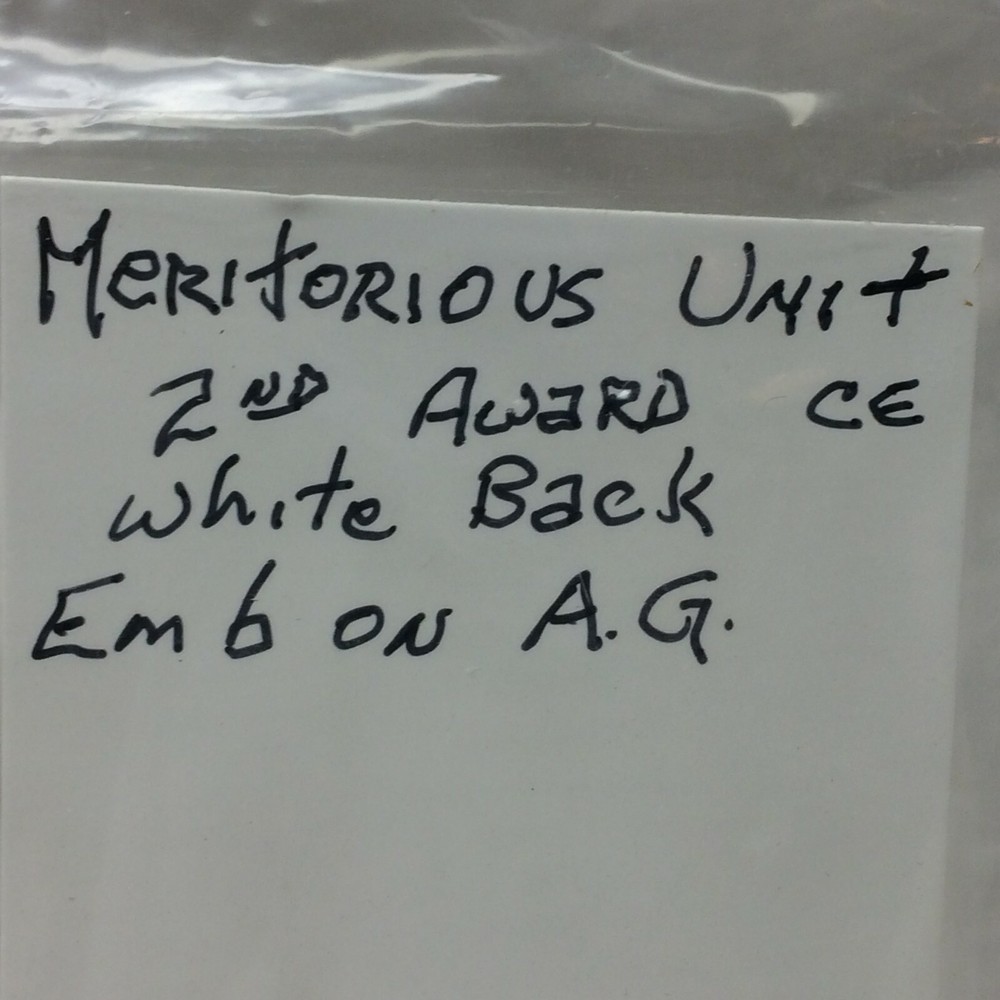 Meritorious Unit
2ND Award CE
White Back
Emb on A.G.